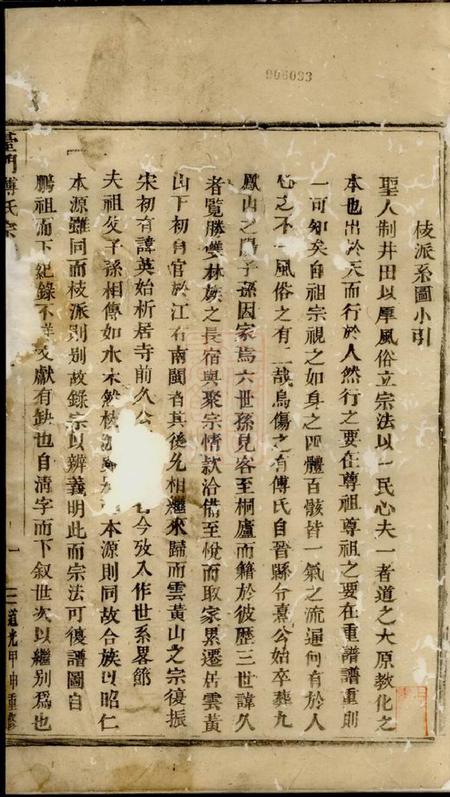 906093
枝派系圖小引
聖人制井田以厚風俗立宗法以一民心夫一者道之大原教化之
本也出於天而行於人然行之要在尊祖尊祖之要在重譜譜重則
一可知矣自祖宗視之如身之四體百骸皆一氣之流通何有於人
心之不一風俗之有二哉烏傷之有傅氏自晉縣令熹公始卒葬九
鳳山之陽子孫因家焉六世孫見客至桐廬而籍於彼歷三世諱久
者覽勝雙林族之長宿與聚宗情款洽備至悅而取家累遷居雲黃
山下初自官於江右南閩者其後允相繼來歸而雲黃山之宗復振
宋初有諱英始析居寺前久公 今攷入作世系畧節
夫祖父子孫相傳如水木然枝 本源則同故合族以昭仁
本源雖同而枝派則別故錄宗以辨義明此而宗法可復譜圖自
鵬祖而下紀錄不詳文獻有缺也自清字而下叙世次以繼別爲也
臺門傅氏宗
一
道光甲申重修